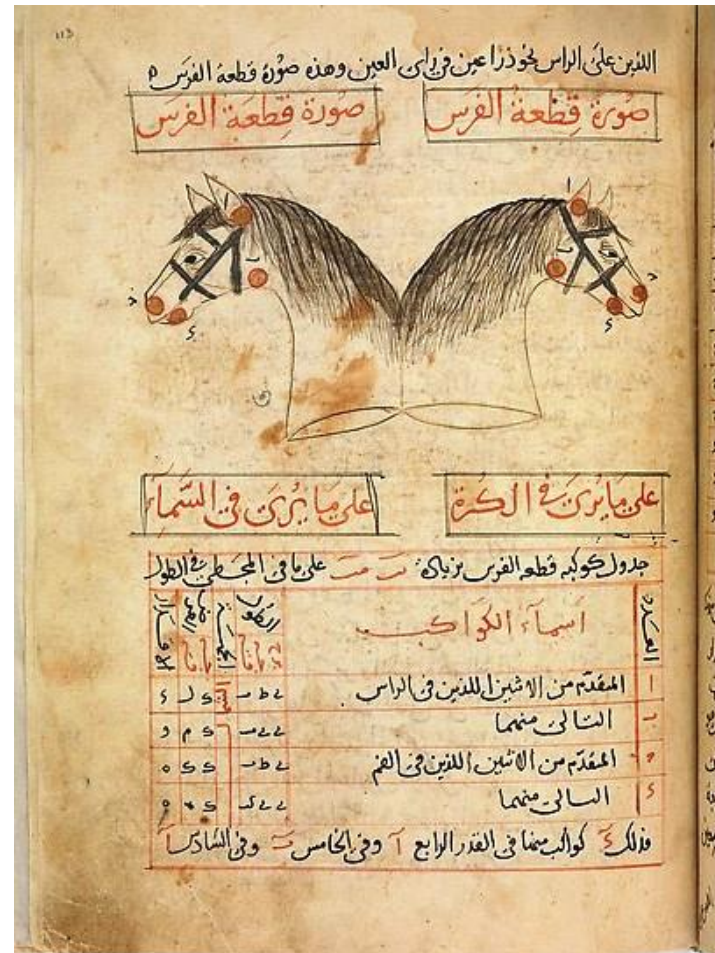 113
اللذين على الراس نحو ذراعين في راى العين وهذه صورة قطعة الفرس
صورة قطعة الفرس
صورة قطعة الفرس
ا
ا
ب
ب
على ما يرى في الكرة
على ما يرى في السماء
جدول كوكبه قطعه الفرس بزيادة على ما في المجسطى في الطول
العدد
اسماء الكواكب
الطول
الجهة
العرض
الاقدار
ا المقدم من الاثنين اللذين في الراس
ب التالى منهما
المقدم من الاثنين اللذين في الفم
التالى منهما
فذلك كواكب منها في القدر الرابع آ وفي الخامس وفي السادس آ